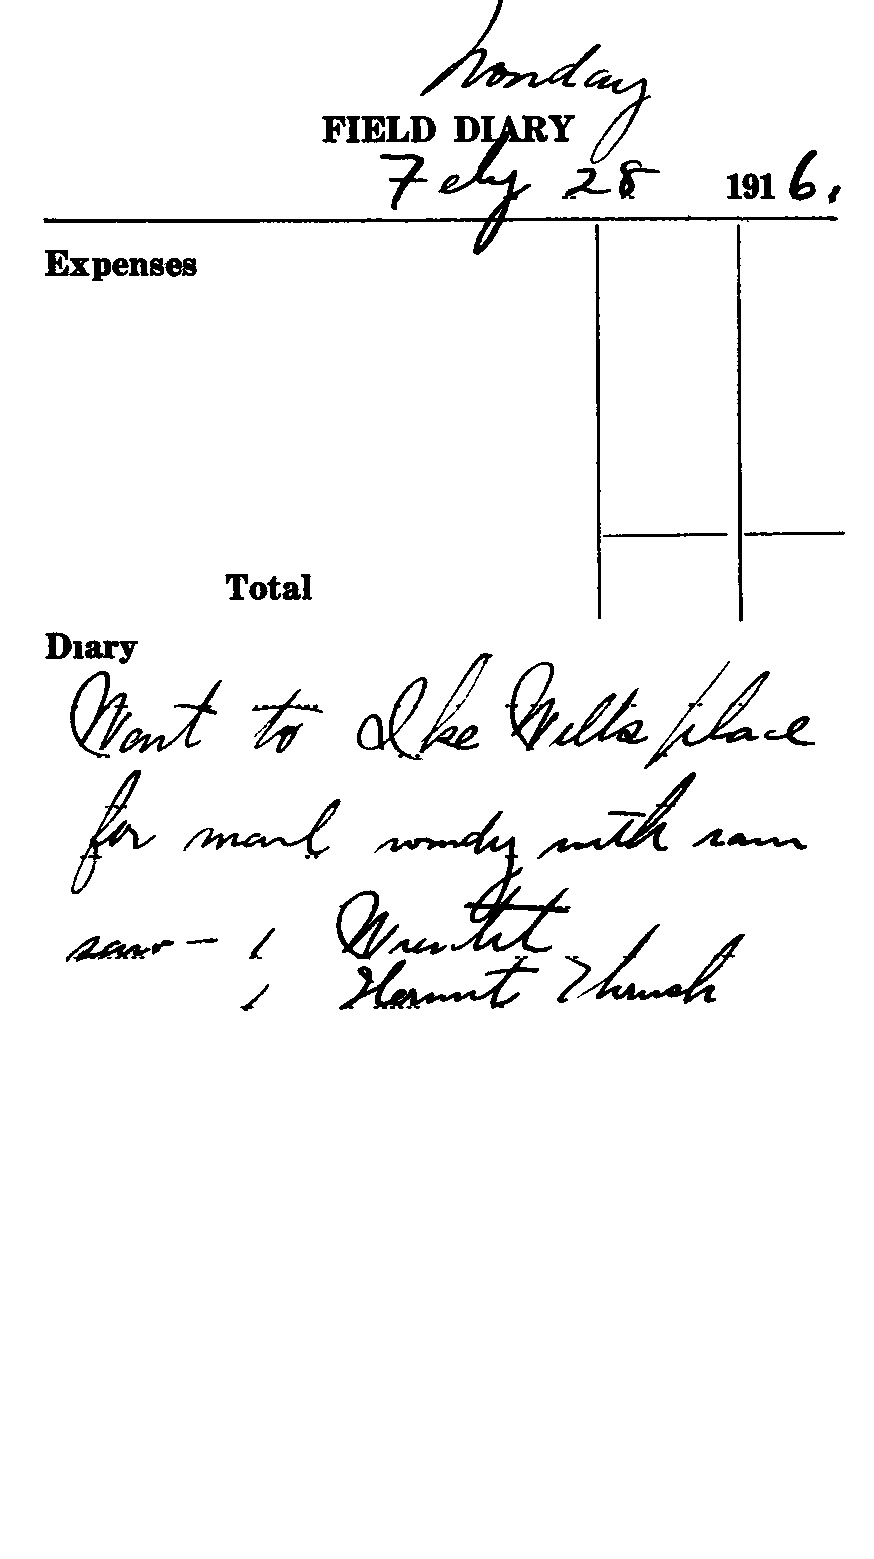 Monday
FIELD DIARY
Feby 28 1916.
Expenses
Total
Diary
Went to Ike Wills place
for mail windy with rain
saw - 1 Wrentit
1 Hermit Thrush